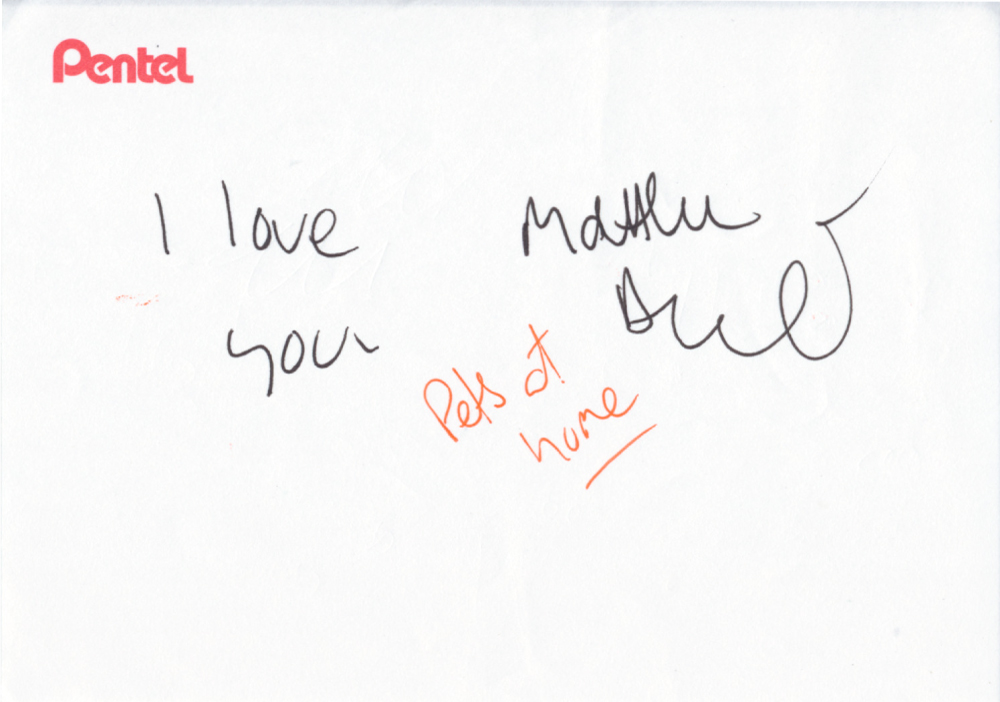 Pentel
I love
you
Matthew
Pets at
home